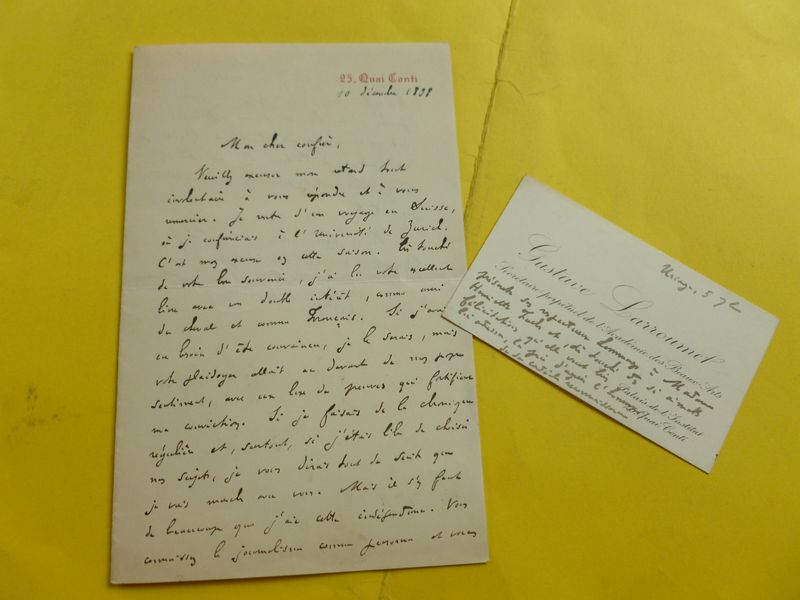 25, Quai Conti
10 décembre 1898
Mon cher confrère,
Veuillez excuser mon retard tout
involontaire à vous répondre et à vous
remercier. Je rentre d'un voyage en Suisse,
où je conférenciais à l'Université de Zurich.
C'est mon excuse en cette saison. Très touché
de votre bon souvenir, j'ai lu votre excellent
livre avec un double intérêt, comme ami
du cheval et comme Français. Si j'avais
eu besoin d'être convaincu, je le serais, mais
votre plaidoyer allait au devant de mon propre
sentiment, avec un luxe de preuves qui fortifient
ma conviction. Si je faisais de la chronique
régulière et, surtout, si j'étais libre de choisir
mes sujets, je vous dirais tout de suite que
je vais marcher avec vous. Mais il s'en faut
de beaucoup que j'aie cette indépendance. Vous
connaissez le journalisme comme personne et vous
Gustave Larroumet
Secrétaire perpétuel de l'Académie des Beaux-Arts
présente ses respectueux hommages à Madame
félicitations qu'elle veut bien
Palais de l'Institut
Quai Conti